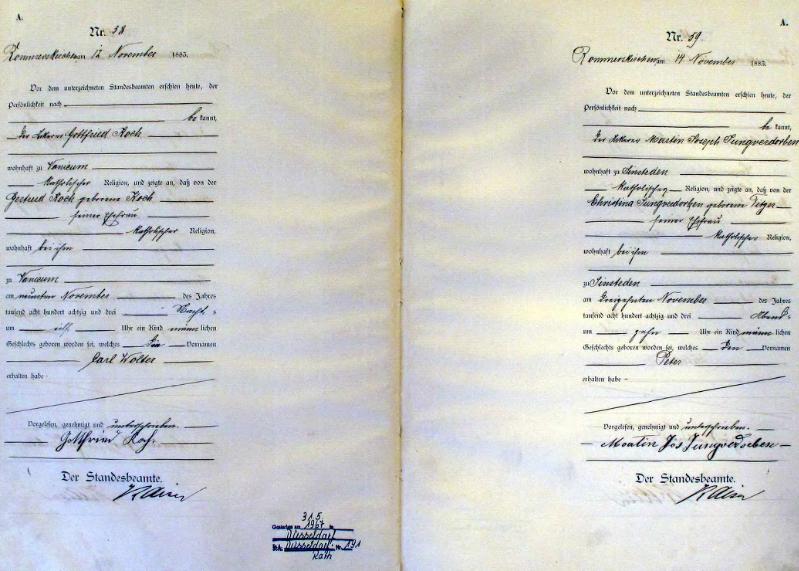 A.
Nr. 58
Rommerskirchen am 12 November 1883.
Vor dem unterzeichneten Standesbeamten erschien heute, der
Persönlichkeit nach
be kannt,
der Ackerer Gottfried Koch
wohnhaft zu Vanikum
katholischer Religion, und zeigte an, daß von der
Gertrud Koch geborene Koch
seiner Ehefrau
katholischer Religion,
wohnhaft bei ihm
zu Vanikum
am neunten November des Jahres
tausend acht hundert achtzig und drei Nacht-s
um elf Uhr ein Kind männ lichen
Geschlechts geboren worden sei, welches die Vornamen
Carl Wolter
erhalten habe
Vorgelesen, genehmigt und unterschrieben.
Gottfried Koch.
Der Standesbeamte.
31.5
1967
Düsseldorf
Düsseldorf Nr. 191
Rath
A.
Nr. 59
Rommerskirchen am 14 November 1883.
Vor dem unterzeichneten Standesbeamten erschien heute, der
Persönlichkeit nach
be kannt,
der Ackerer Martin Joseph Jungverdorben
wohnhaft zu Sinsteden
katholischer Religion, und zeigte an, daß von der
Christina Jungverdorben geborene
seiner Ehefrau
katholischer Religion,
wohnhaft bei ihm
zu Sinsteden
am dreizehnten November des Jahres
tausend acht hundert achtzig und drei Abend-s
um zehn Uhr ein Kind männ lichen
Geschlechts geboren worden sei, welches den Vornamen
Peter
erhalten habe
Vorgelesen, genehmigt und unterschrieben.
Martin Jos Jungverdorben
Der Standesbeamte.